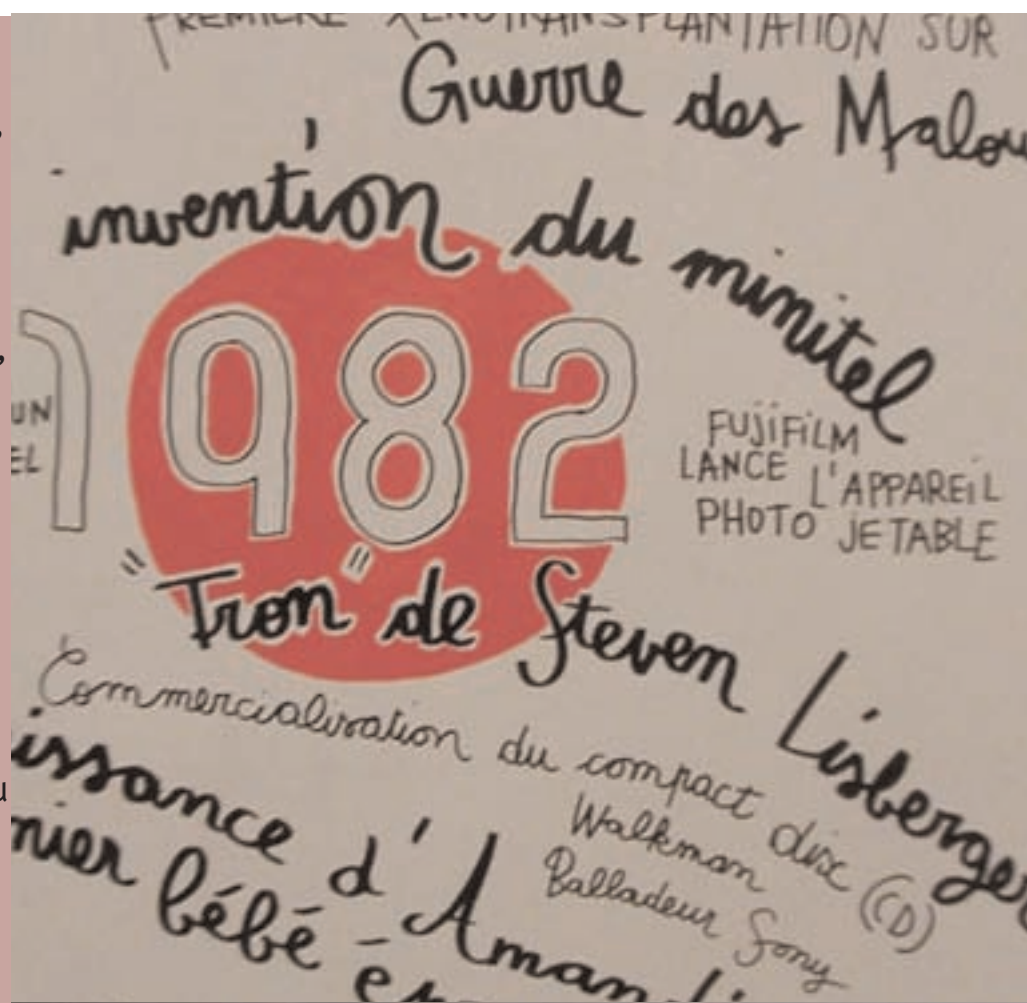 PREMIÈRE XÉNOTRANSPLANTATION SUR
Guerre des Malou
invention du minitel
1982
UN
EL
FUJIFILM
LANCE L'APPAREIL
PHOTO JETABLE
"Tron" de Steven Lisberger
Commercialisation du compact disc (CD)
Walkman
Balladeur Sony
issance d'Amandi
mier bébé ép